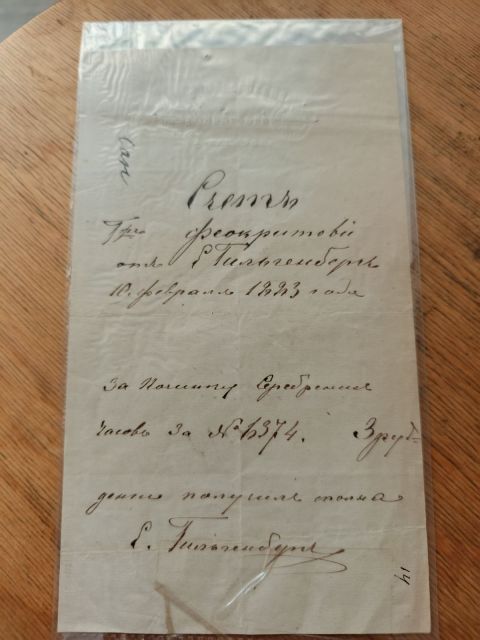 Счетъ
Г-ну Феокритовой
отъ Е Гильгенбергъ
10. февраля 1883 года
за Починку Серебреныя
часовъ за № 6374. 3 руб
денги получилъ сполна
Е. Гильгенбергъ
14